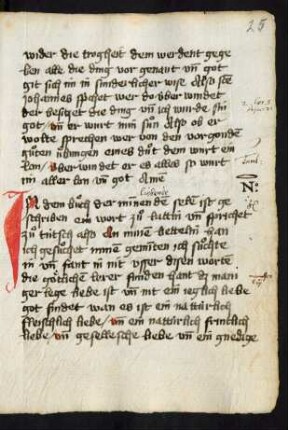 25
wider die trogheit dem werdent gege
ben alle die ding vor genant vn̄ got
git sich im in sunderlicher wise Also sct̄
Johannes spchet wer do vber windet
der besitzet die ding vn̄ ich wurde sin
got vn̄ er wirt min sun Also ob er
wolte sprechen wer von den vorgonden
guten ubungen eines dut dem wirt ein
lon aber windet er es alles so wirt
im aller lon vn̄ got Ame
In dem buch der minenden sele ist ge
schriben ein wort zu latin vn̄ sprichet
zu tütsch also In mime bettelin han
ich gesuchet minē geminten ich suchte
in vn̄ fant in nit vsser disen worte
die götliche lerer finden hant dz man
ger lege liebe ist vn̄ nit ein ieglich liebe
got findet wan es ist ein natürlich
fleischlich liebe vn̄ ein natürlich früntlich
liebe vn̄ gesellesche liebe vn̄ ein gnedige